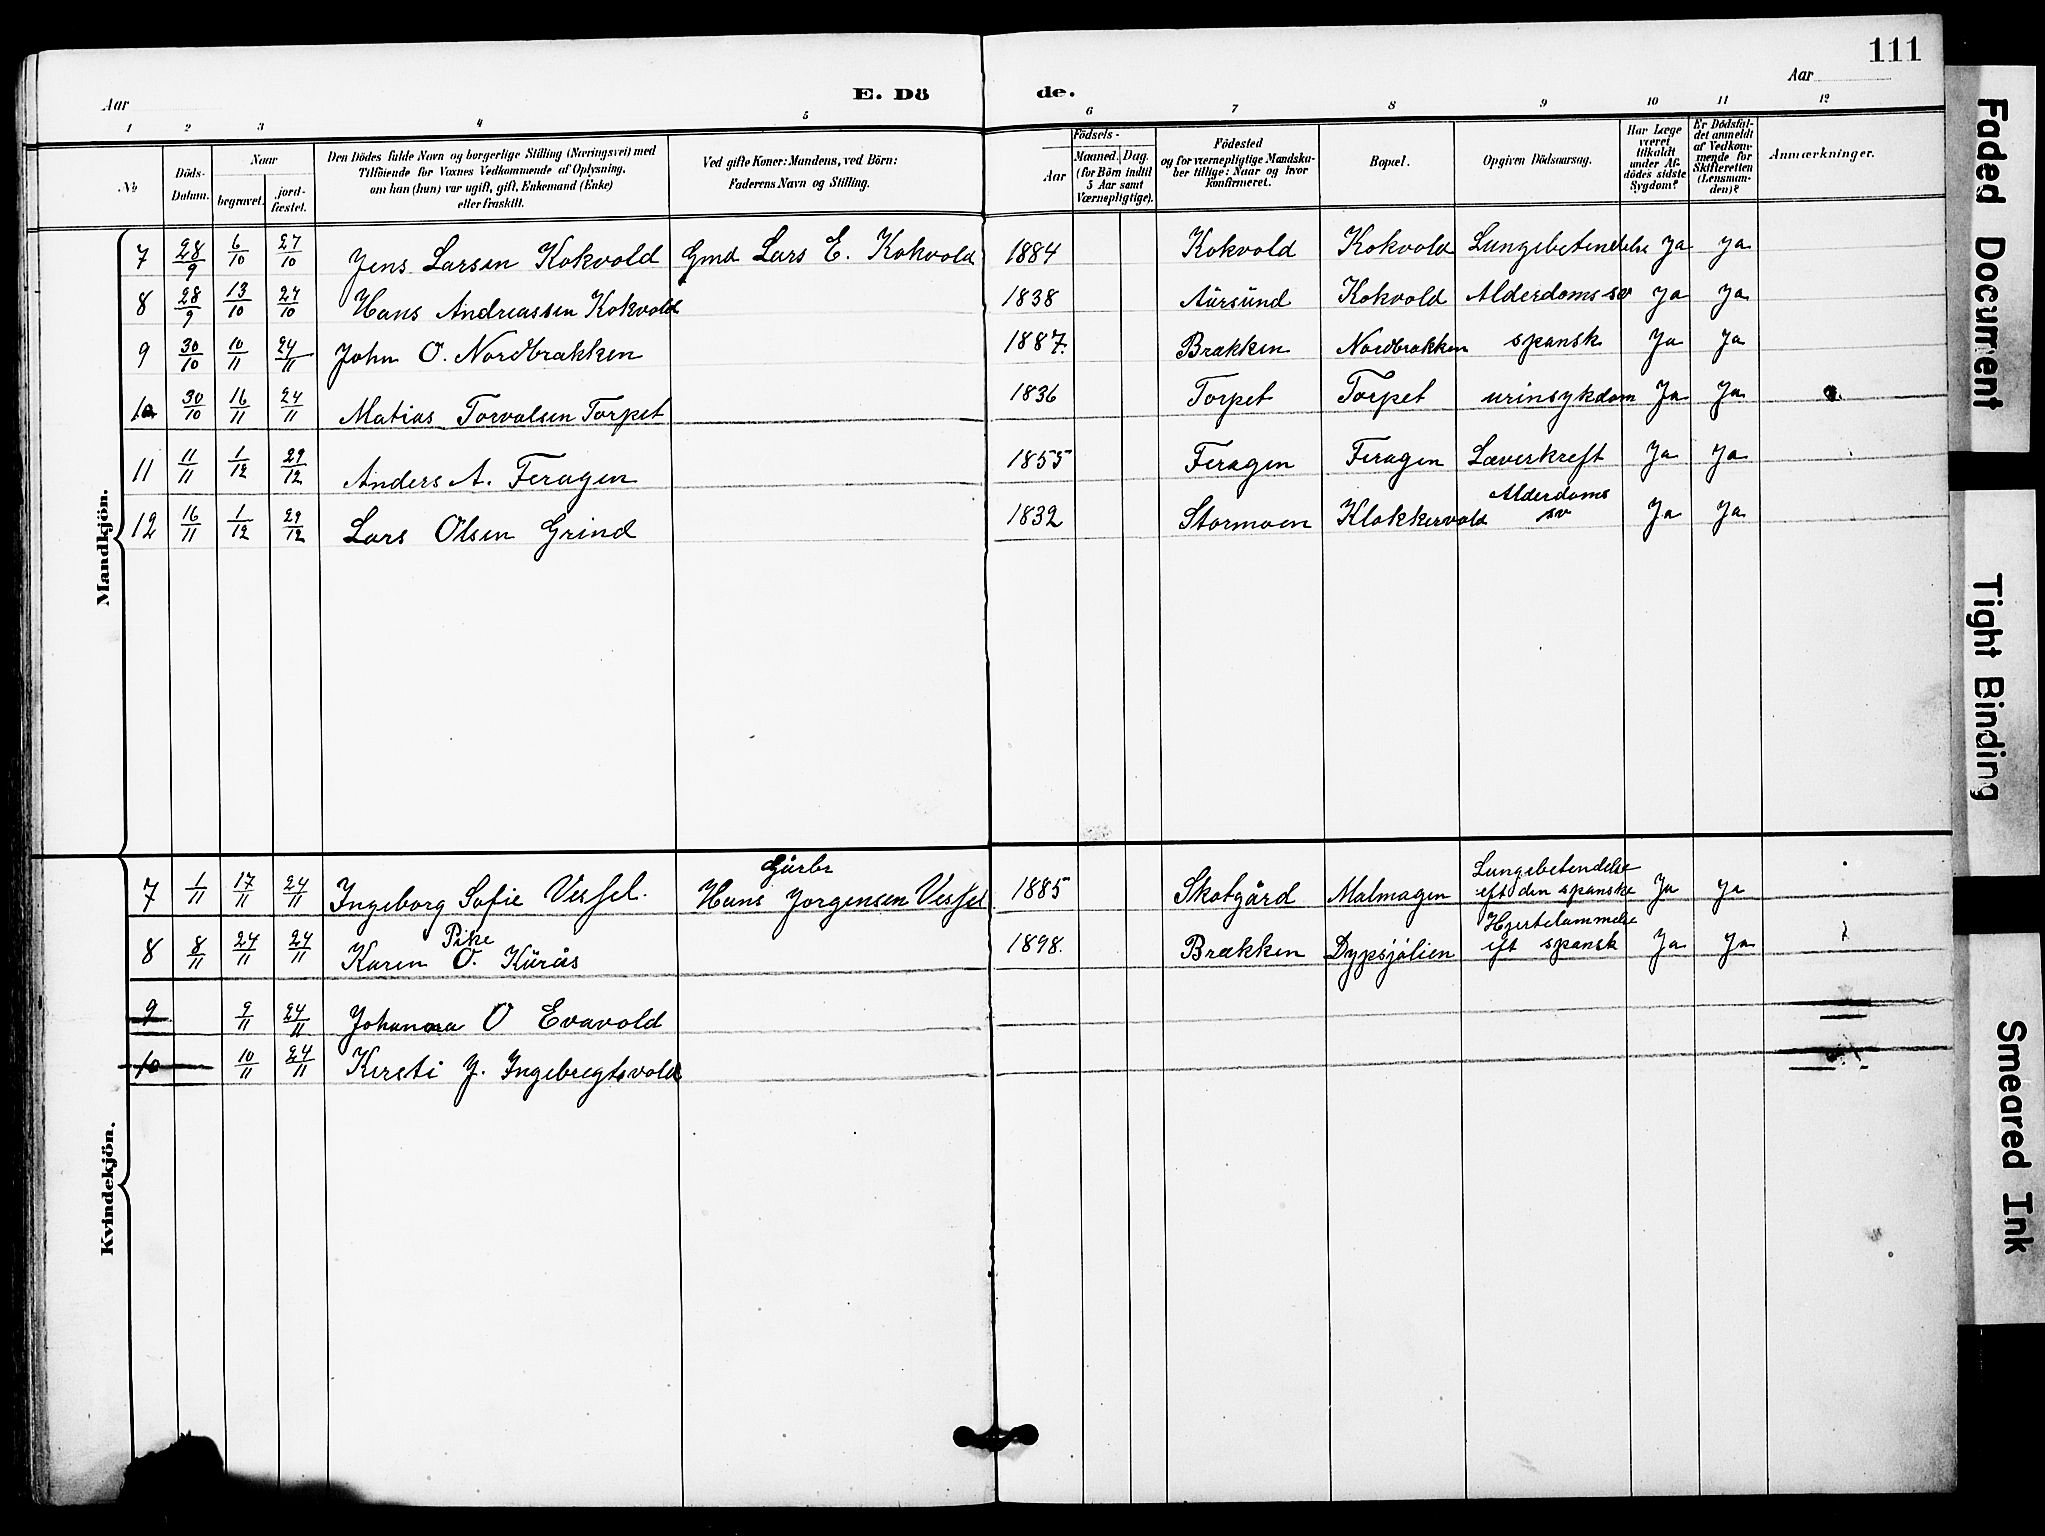 111
Aar
E. Dö de.
Aar
1 2 3 4 5 6 7 8 9 10 11 12
No
Döds-Datum.
Naar
begravet.
jord-fæstet.
Den Dödes fulde Navn og borgerlige Stilling (Næringsvei) med
Tilföiende for Voxnes Vedkommende af Oplysning,
om han (hun) var ugift, gift, Enkemand (Enke)
eller fraskilt.
Ved gifte Koner: Mandens, ved Börn:
Faderens Navn og Stilling.
Födsels-
Aar
Maaned. Dag.
(for Börn indtil
5 Aar samt
Værnepligtige).
Födested
og for værnepligtige Mandska-
ber tillige: Naar og hvor
konfirmeret.
Bopæl.
Opgiven Dödsaarsag.
Har Læge
været
tilkaldt
under Af-
dödes sidste
Sygdom?
Er Dödsfal-
det anmeldt
af Vedkom-
mende for
Skifteretten
(Lensman-
den)?
Anmærkninger.
Mandkjön.
7 28/9 6/10 27/10 Jens Larsen Kokvold Gmd Lars E. Kokvold 1884 Kokvold Kokvold Lungebetendelse Ja Ja
8 28/9 13/10 27/10 Hans Andreassen Kokvold 1838 Aursund Kokvold Alderdoms sv Ja Ja
9 30/10 10/11 24/11 John O. Nordbrækken 1887. Brækken Nordbrækken spansk Ja Ja
10 30/10 16/11 24/11 Matias Torvalsen Torpet 1836 Torpet Torpet urinsykdom Ja Ja
11 11/11 1/12 29/12 Anders A. Feragen 1855 Feragen Feragen Læverkreft Ja Ja
Alderdoms
12 16/11 1/12 29/12 Lars Olsen Grind 1832 Stormoen Klokkervold sv Ja Ja
Kvindekjön.
Gårbr Lungebetendelse
7 1/11 17/11 24/11 Ingeborg Sofie Vessel. Hans Jorgensen Vessel 1885 Skotgård Malmagen eft den spanske Ja Ja
Pike Hjertelammelse
8 8/11 24/11 24/11 Karen O. Kurås 1898. Brækken Dypsjølien eft spansk Ja Ja
9 9/11 24/11 Johanna O Evavold
10 10/11 24/11 Kersti J. Ingebregtsvold
Faded Document
Tight Binding
Smeared Ink